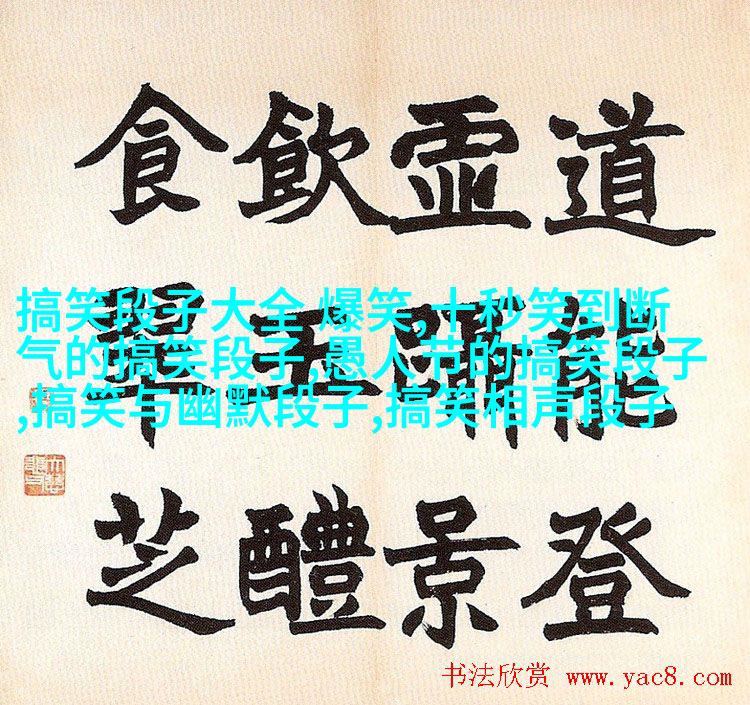 道能登
虛景
飲玉醴
食翠芝
搞笑段子大全 爆笑,十秒笑到断
气的搞笑段子,愚人节的搞笑段子
,搞笑与幽默段子,搞笑相声段子
书法欣赏 www.yac8.com